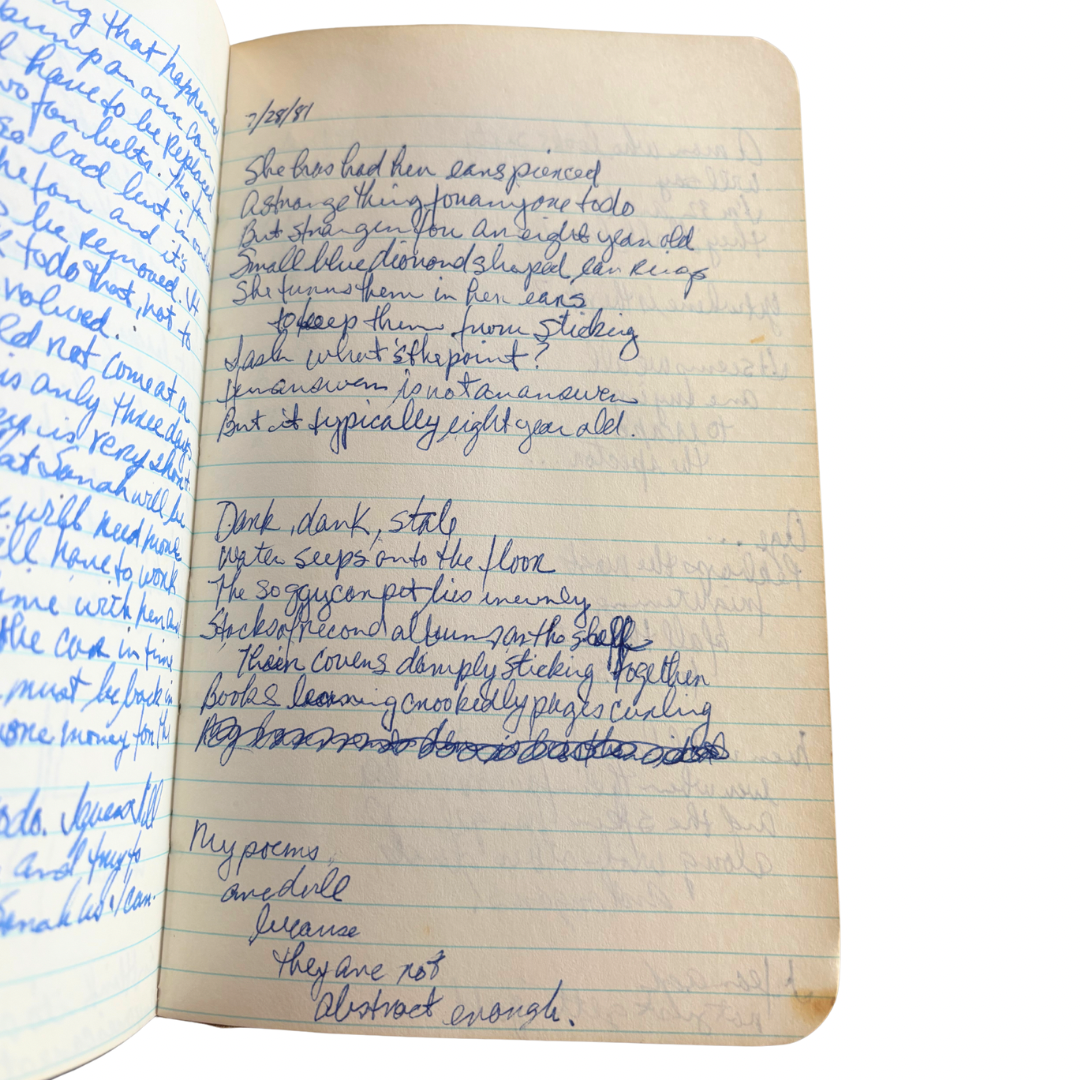 ng that happened
bump on our car
I have to be replaced
two fan belts. The fan
so bad bent in on
the fan and it's
be removed. It
to do that, not to
volved.
ld not come at a
is only three days
is very short
at Sarah will be
e will need more
ill have to work
ime with her and
the car in time
must be back in
more money for th
odo. I guess I'll
and try to
Sarah as I can.
7/28/81
She has had her ears pierced
A strange thing for anyone to do
But stranger for an eight year old
Small blue diamond shaped ear rings
She turns them in her ears
to keep them from sticking
I ask what's the point?
Her answer is not an answer
But it typically eight year old.
Dank, dank, stale
Water seeps onto the floor
The soggy carpet lies inertly
Stacks of record albums on the shelf
Their covers damply sticking together
Books leaning crookedly pages curling
My poems
are dull
because
they are not
abstract enough.